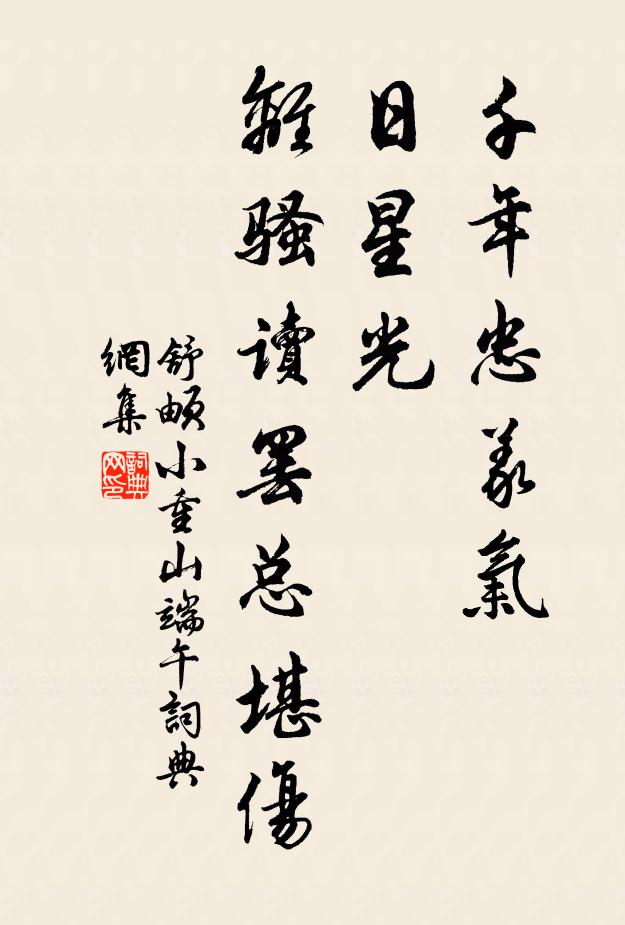 千年忠義氣
日星光
離騷讀罢总堪傷
舒頔小重山端午詞典
網集
詞典网印